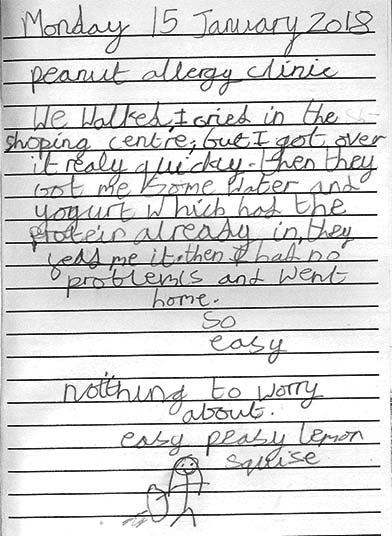 Monday 15 January 2018
peanut allergy clinic
We walked, I cried in the
shoping centre, but I got over
it realy quickly. then they
Got me some water and
yogurt which had the
protein already in, they
feed me it. then I had no
problems and went
home.
so
easy
notthing to worry
about.
easy peasy lemon
squise